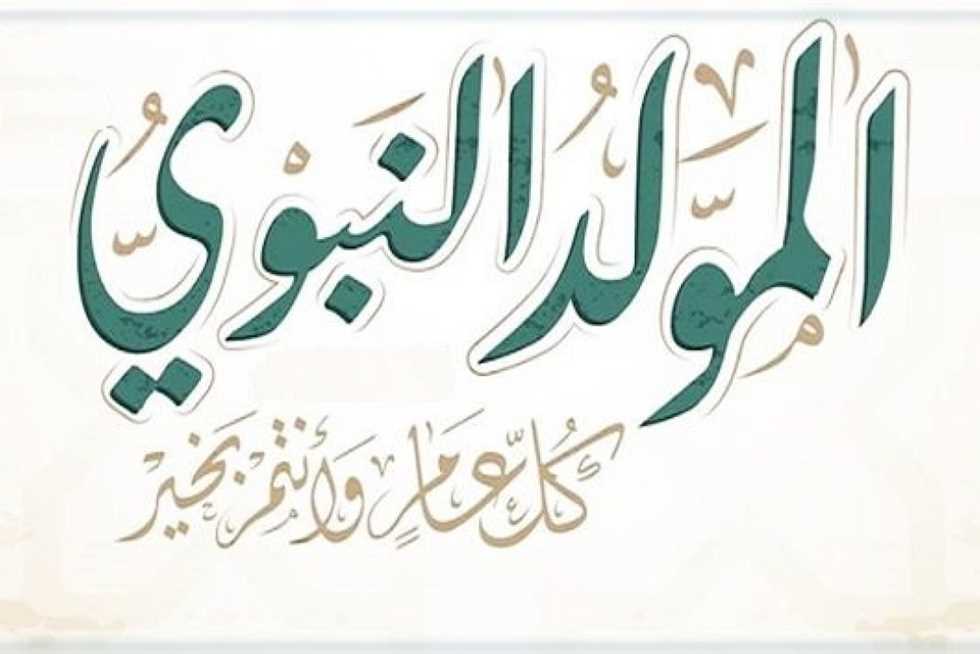 المَولدُ النَبَويّ
كُلّ عَامٍ وَأنتُمْ بَخيْر